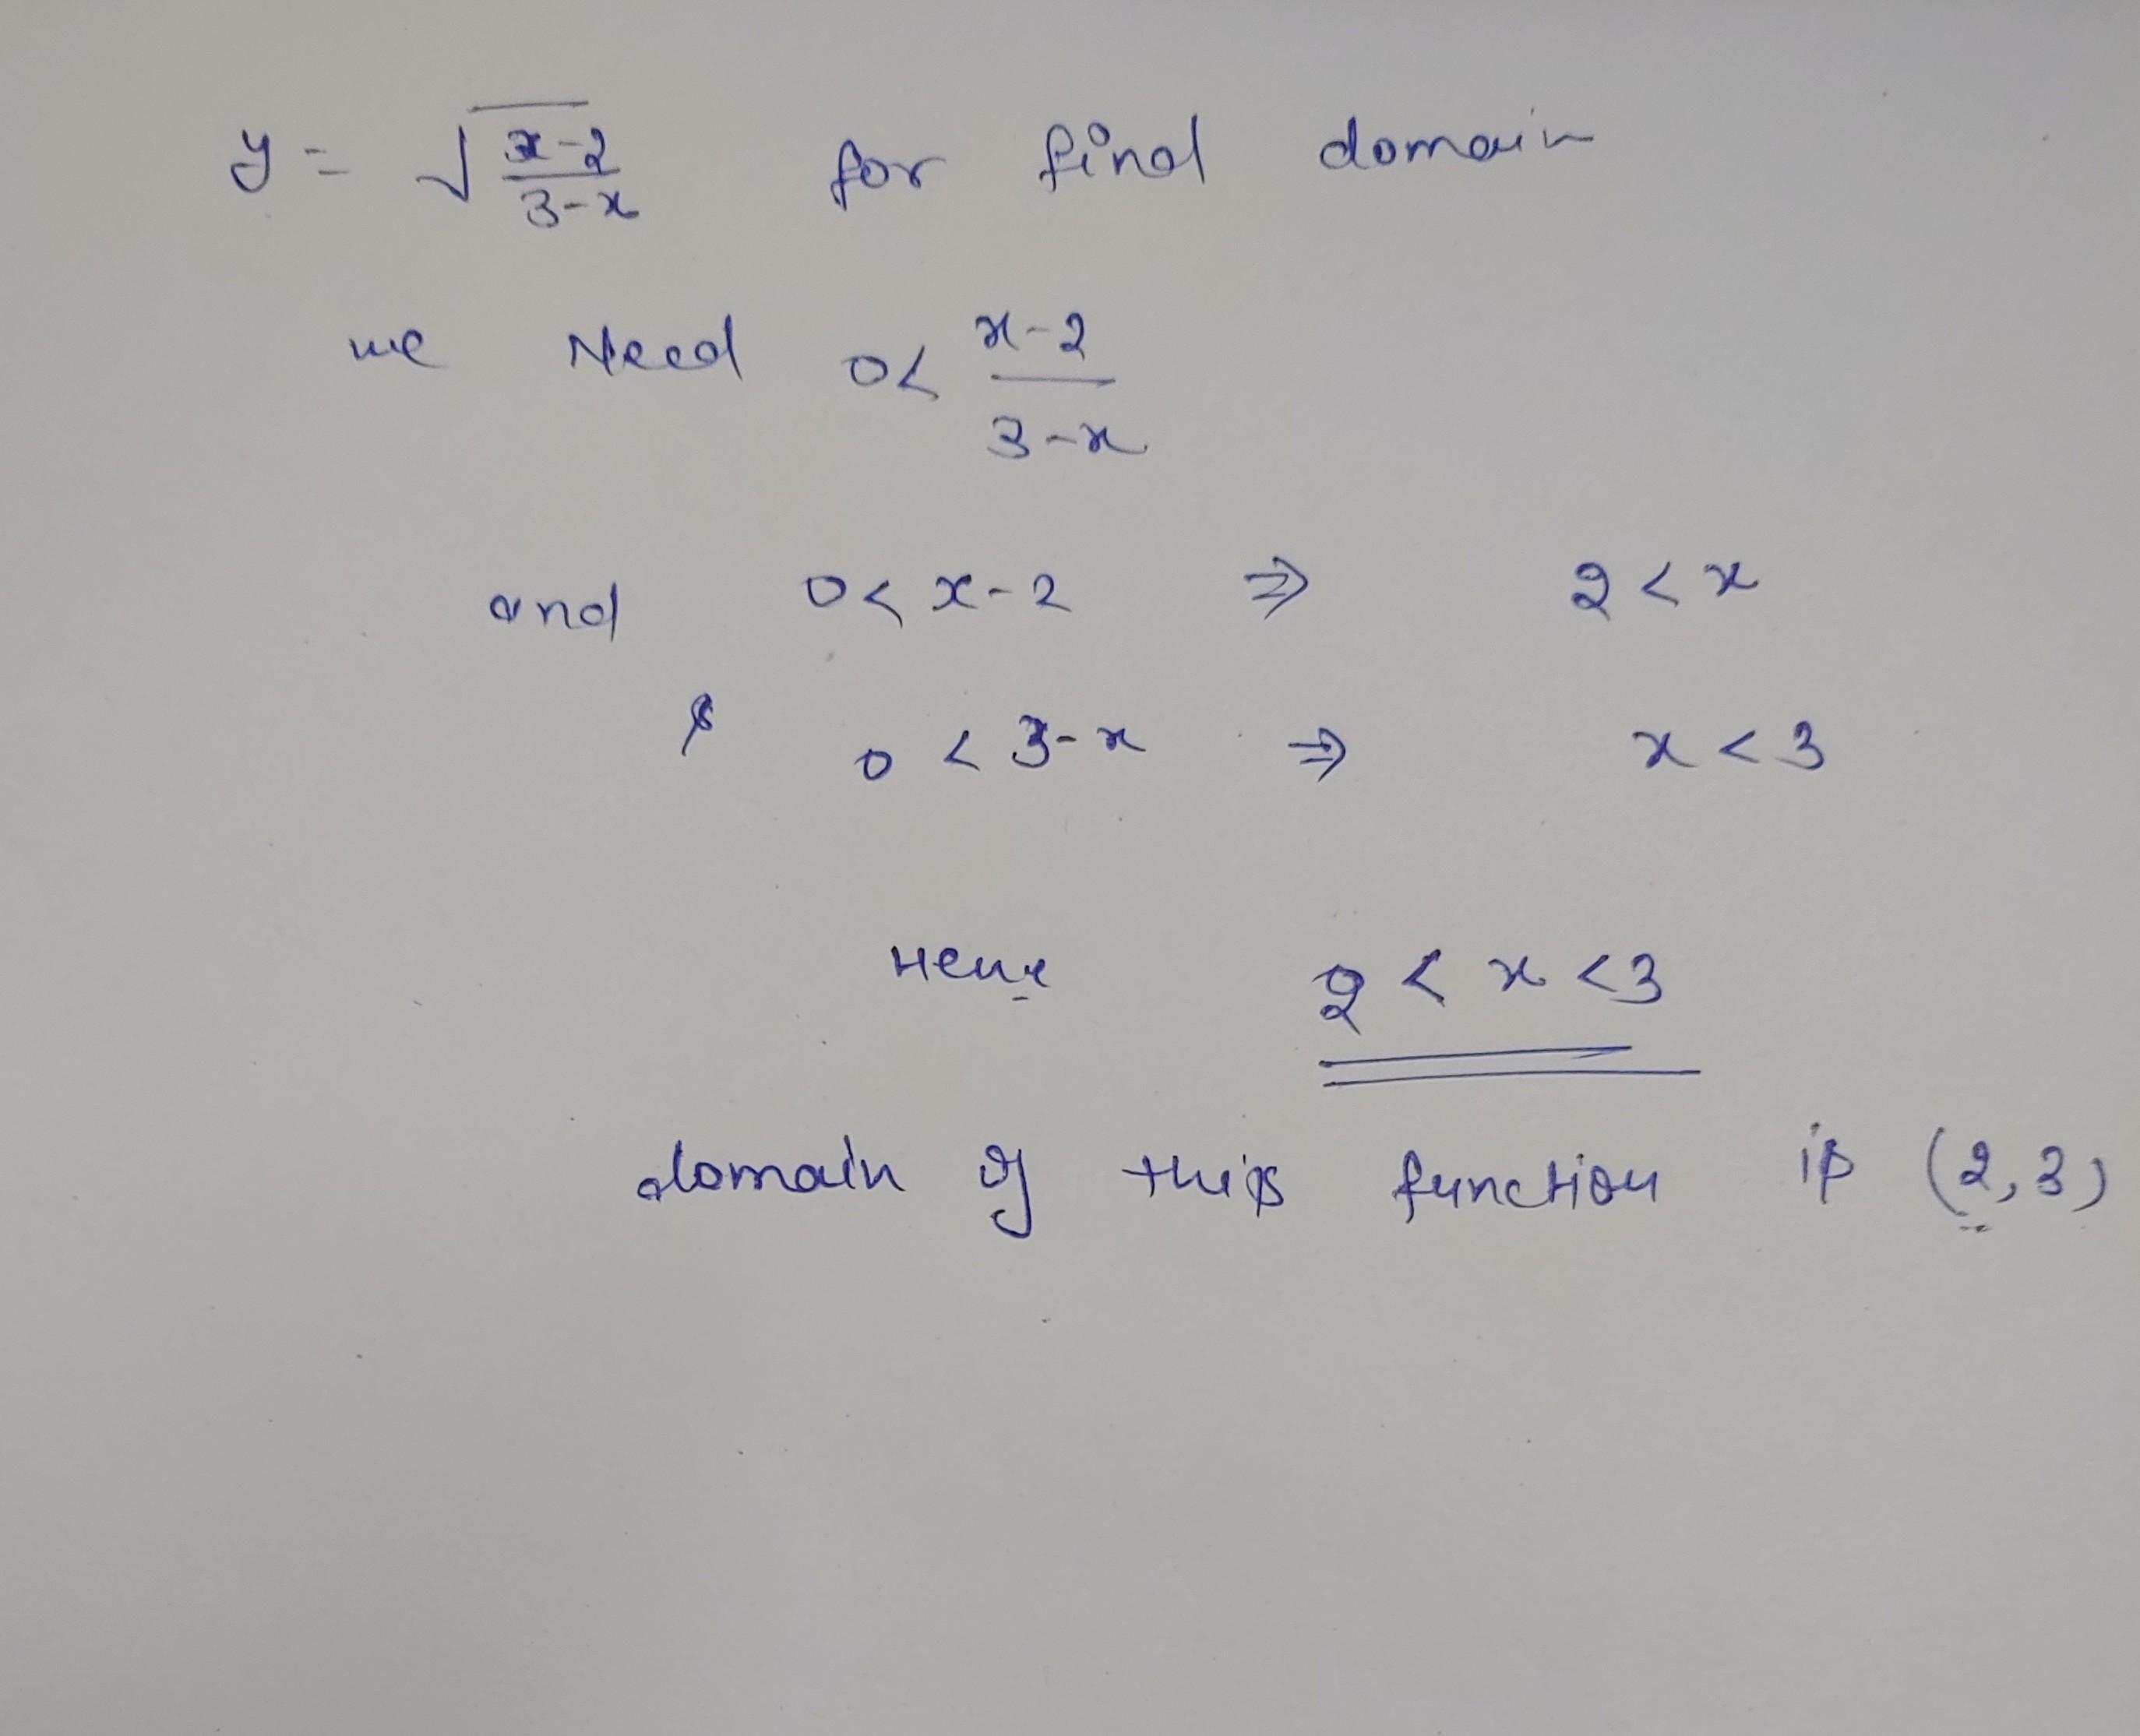 y = √(x-2)/(3-x) for find domain
we Need 0 < (x-2)/(3-x)
and 0 < x-2 ⇒ 2 < x
& 0 < 3-x ⇒ x < 3
Hence 2 < x < 3
domain of this function is (2,3)